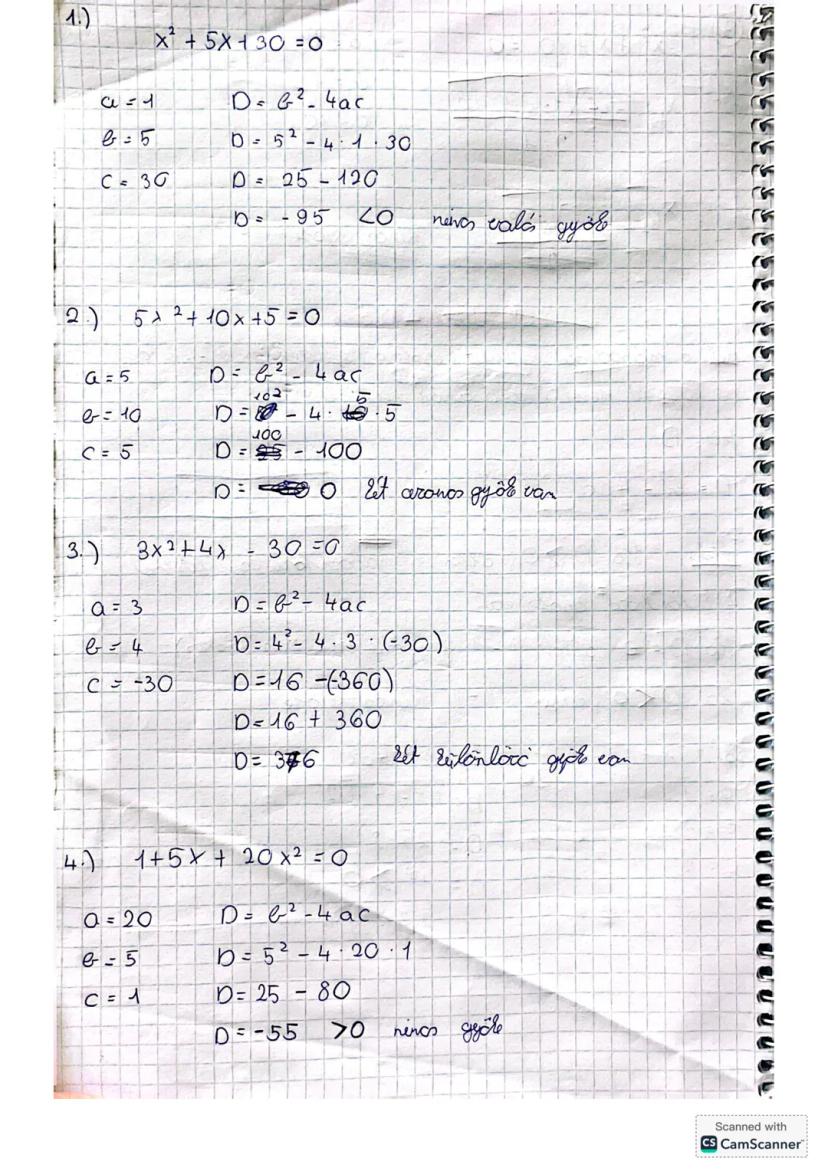 1.)
x² + 5x + 30 = 0
a = 1 D = b² - 4ac
b = 5 D = 5² - 4 · 1 · 30
c = 30 D = 25 - 120
D = -95 <0 nincs valós gyök
2.) 5x² + 10x + 5 = 0
a = 5 D = b² - 4ac
b = 10 D = 10² - 4 · 5 · 5
c = 5 D = 100 - 100
D = 0 két azonos gyök van
3.) 3x² + 4x - 30 = 0
a = 3 D = b² - 4ac
b = 4 D = 4² - 4 · 3 · (-30)
c = -30 D = 16 - (-360)
D = 16 + 360
D = 376 két különböző gyök van
4.) 1 + 5x + 20x² = 0
a = 20 D = b² - 4ac
b = 5 D = 5² - 4 · 20 · 1
c = 1 D = 25 - 80
D = -55 >0 nincs gyök
Scanned with
CS CamScanner